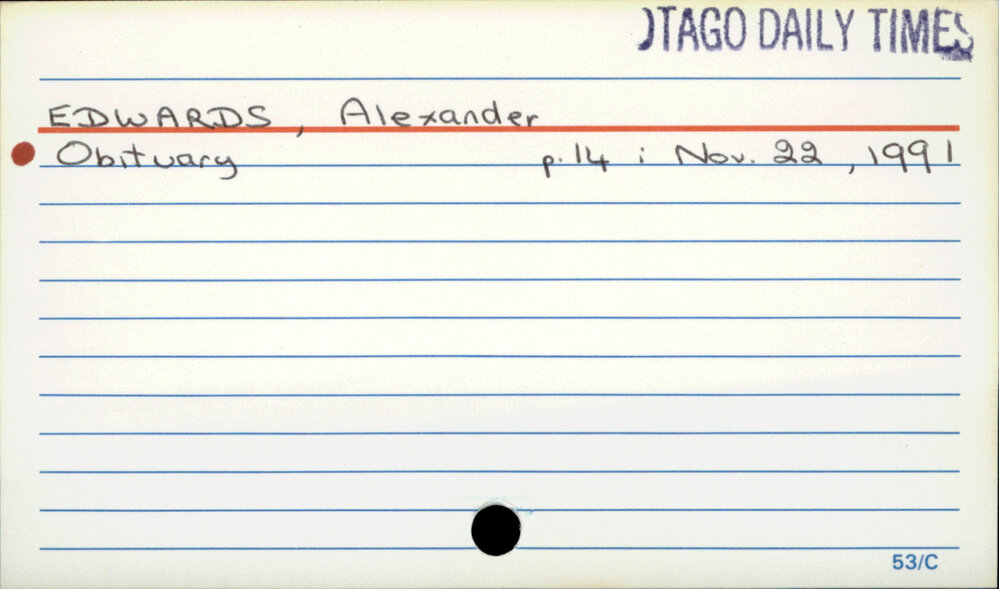 OTAGO DAILY TIMES
EDWARDS, Alexander
Obituary p.14 : Nov. 22, 1991
53/C